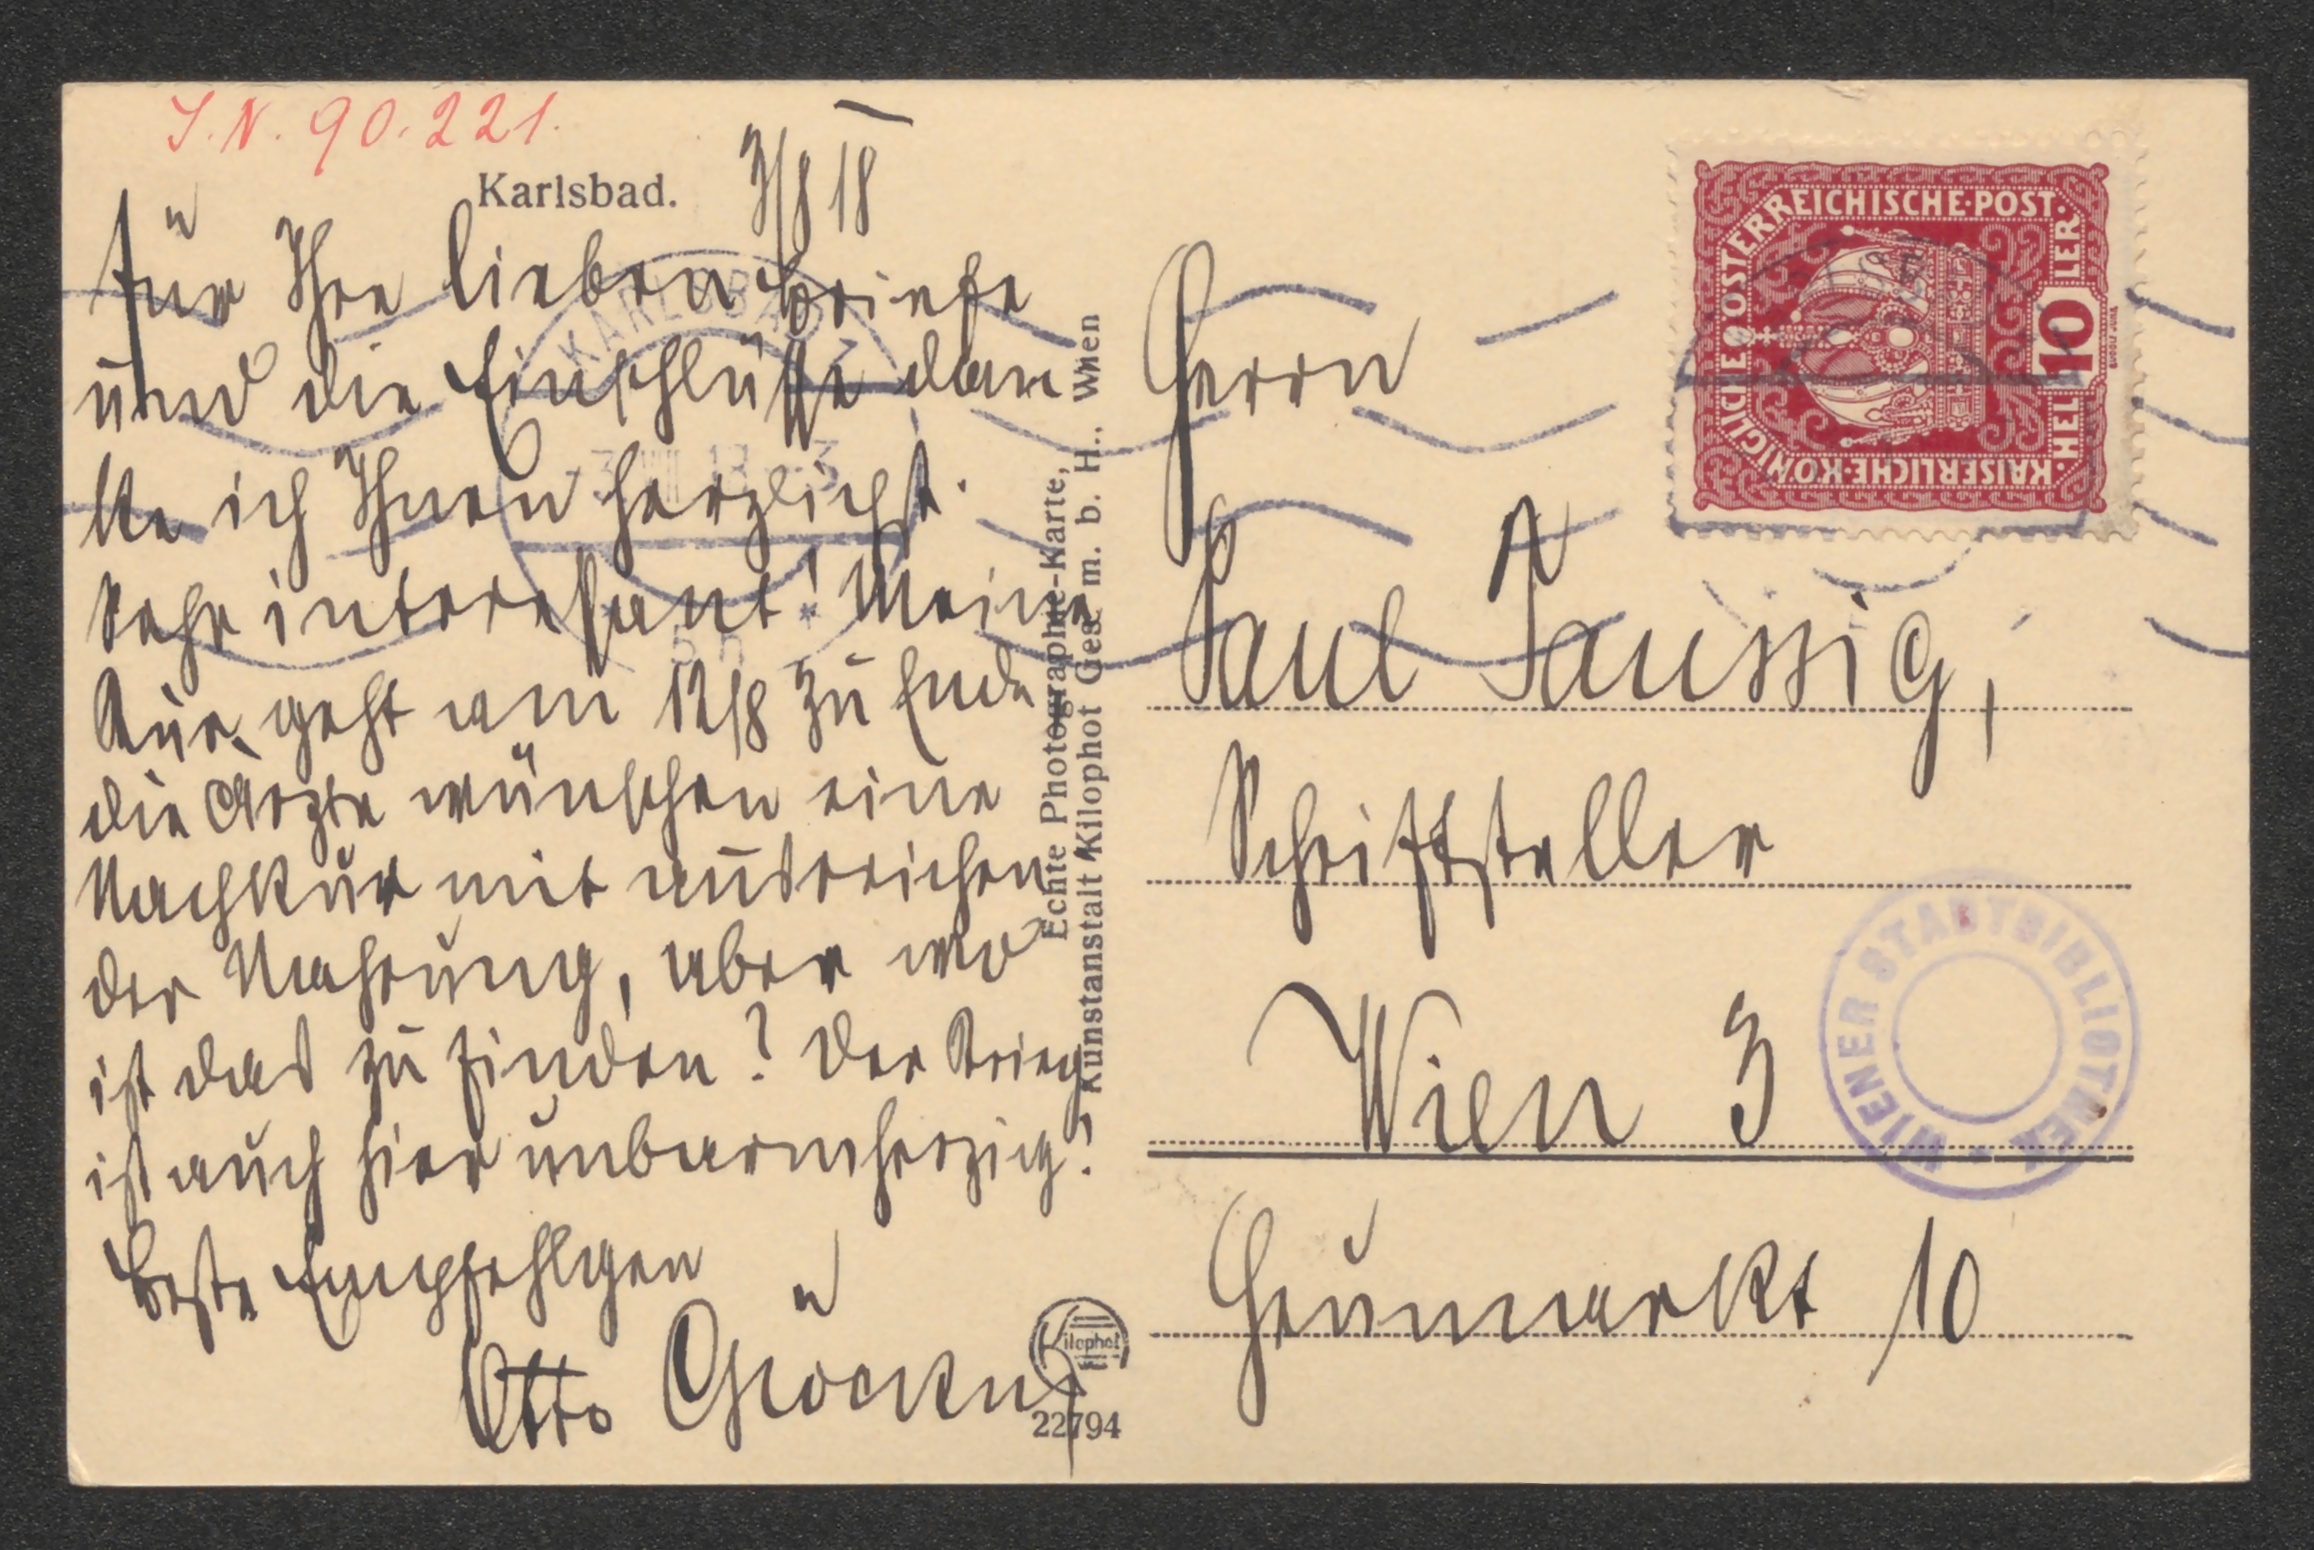 I.N. 90.221.
Karlsbad. 3/8 18
Für Ihre lieben Briefe
und die Einschlüsse dan
ke ich Ihnen herzlichst.
Sehr interessant! Meine
Kur geht am 12/8 zu Ende
die Ärzte wünschen eine
Nachkur mit ausreichen
der Nahrung, aber wo
ist das zu finden? Der Krieg
ist auch hier unbarmherzig!
Beste Empfehlgen
Otto
Echte Photographie-Karte,
Kunstanstalt Kilophot Ges. m. b. H., Wien
Kilophot
22794
KARLSBAD
KAISERLICHE·KÖNIGLICHE ÖSTERREICHISCHE·POST·
10 HELLER
Herrn
Paul Taussig,
Schriftsteller
Wien 3
Heumarkt 10
WIENER STADTBIBLIOTHEK